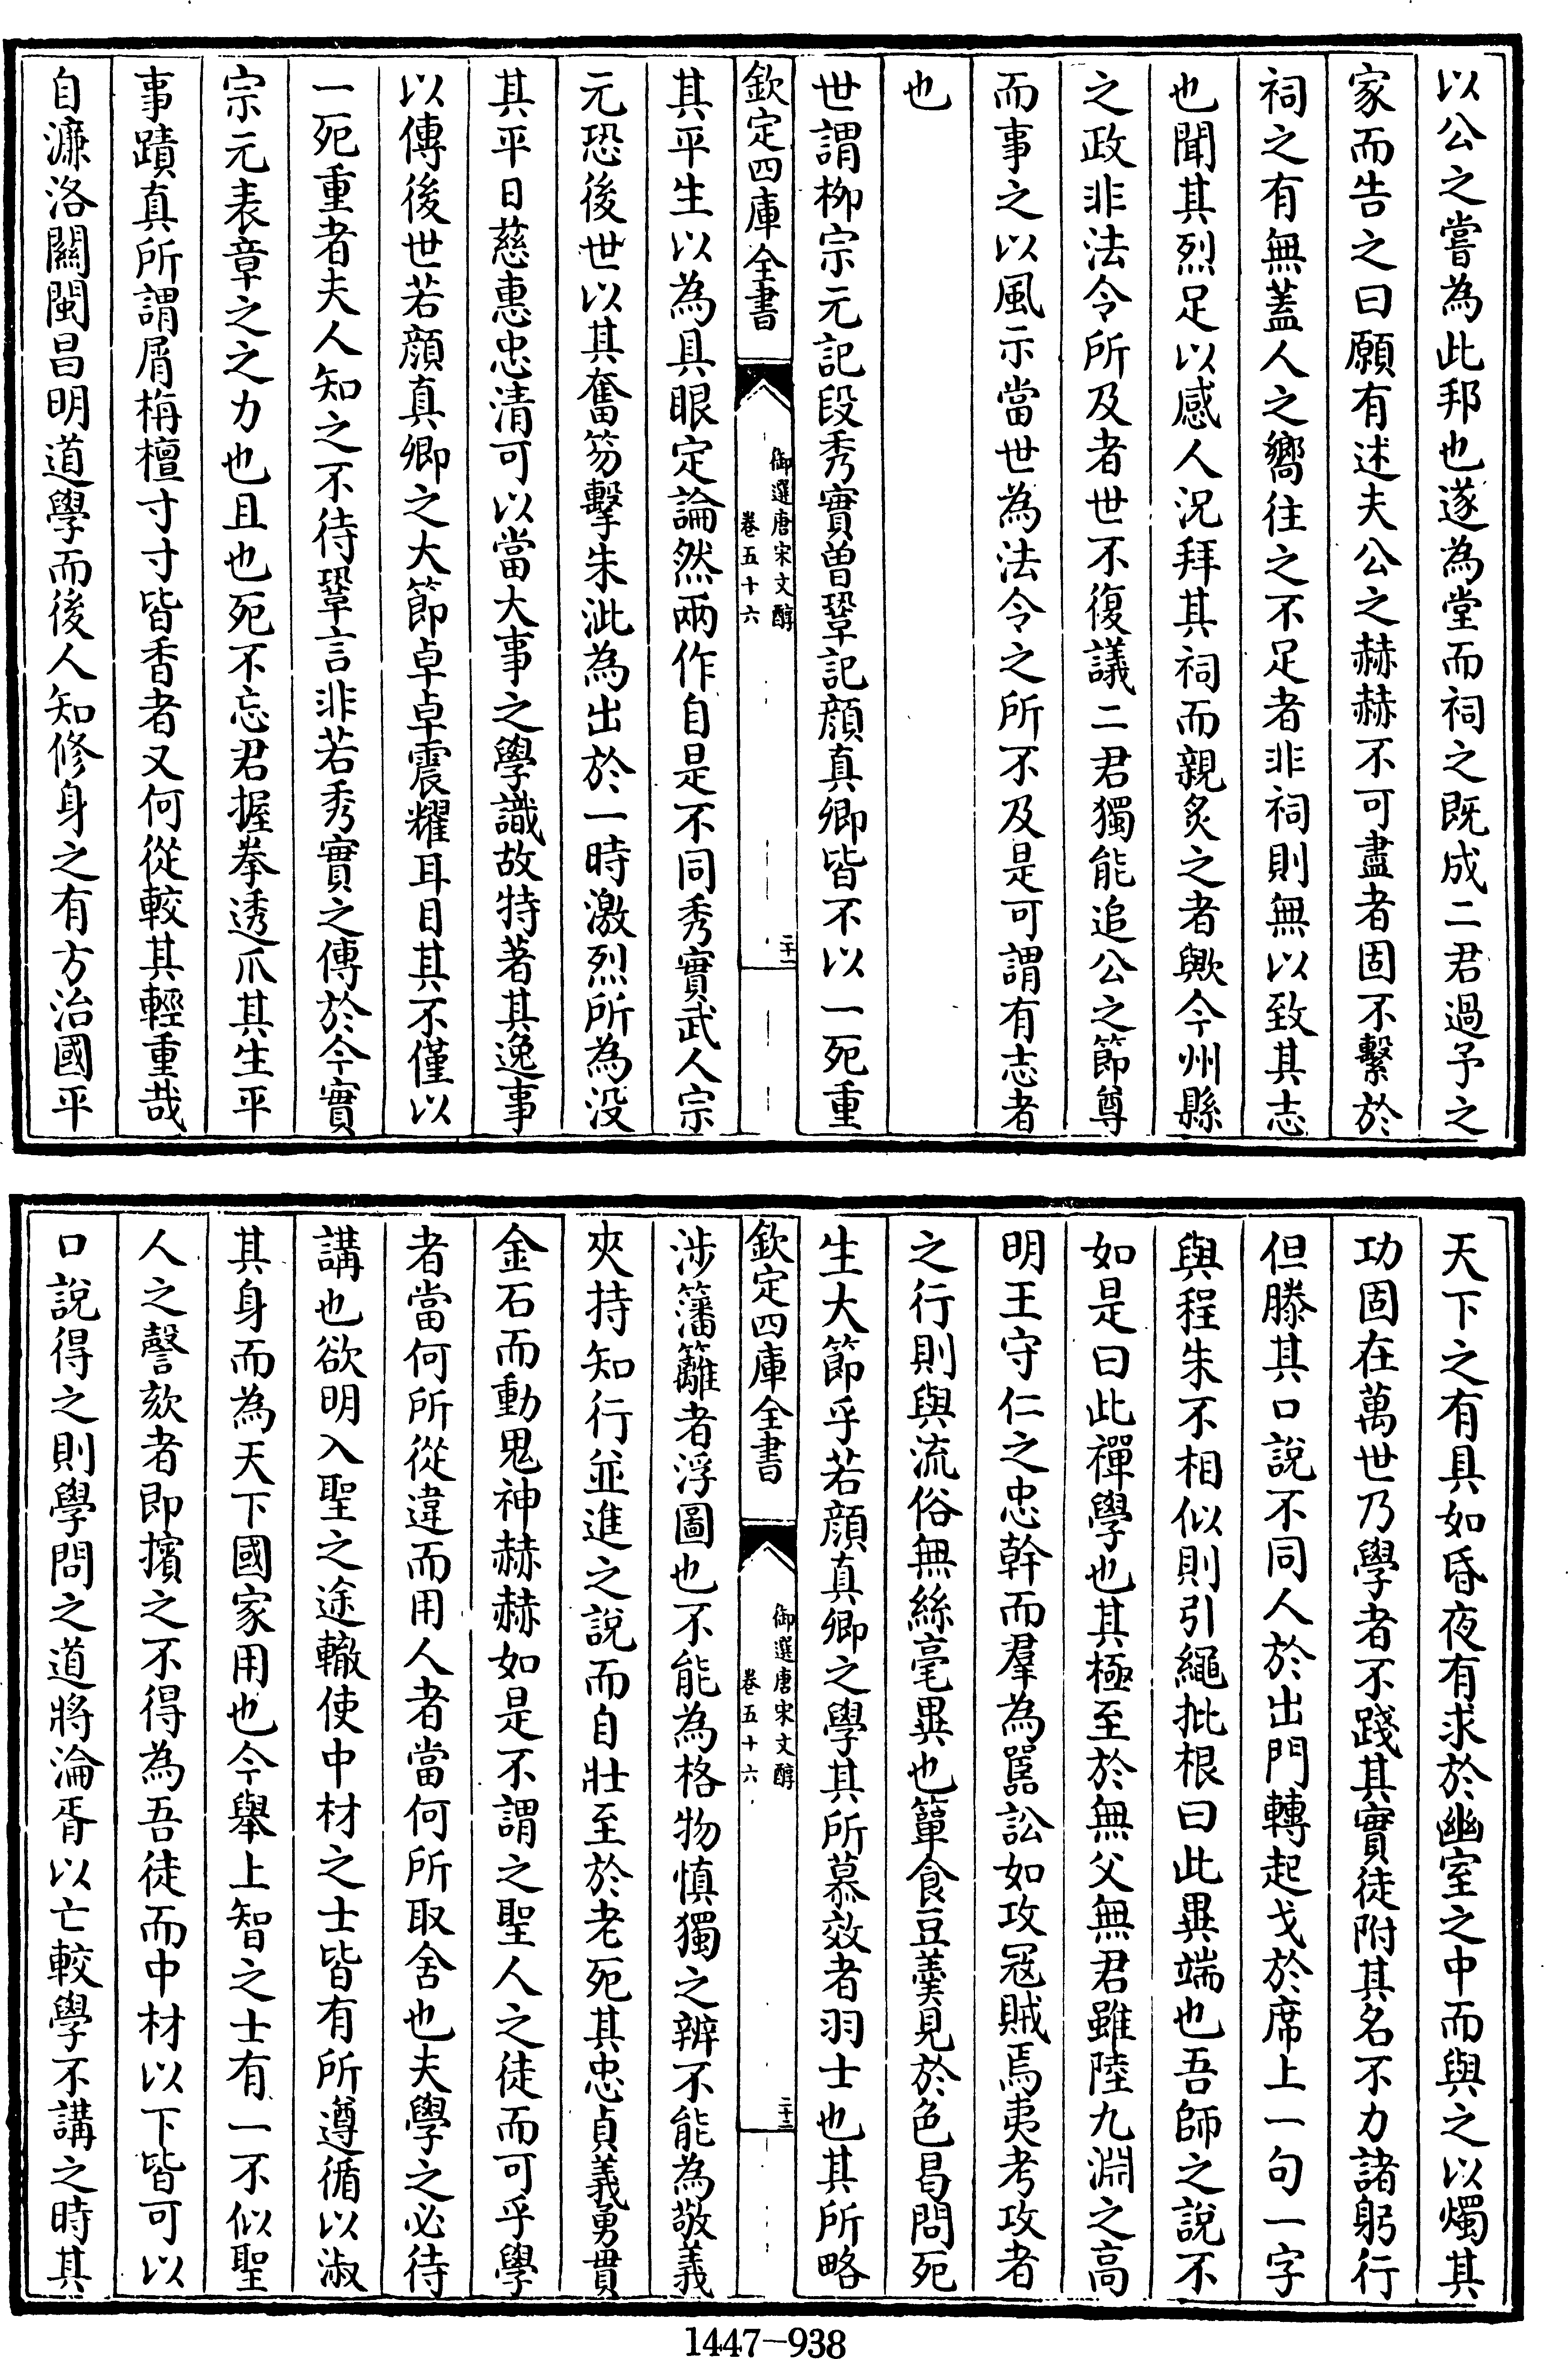 以公之嘗為此邦也遂為堂而祠之既成二君過予之
家而告之曰願有述夫公之赫赫不可盡者固不繫於
祠之有無蓋人之嚮往之不足者非祠則無以致其志
也聞其烈足以感人況拜其祠而親炙之者歟今州縣
之政非法令所及者世不復議二君獨能追公之節尊
而事之以風示當世為法令之所不及是可謂有志者
也
世謂柳宗元記段秀實曾鞏記顔真卿皆不以一死重
欽定四庫全書
御選唐宋文醇
卷五十六
二十一
其平生以為具眼定論然兩作自是不同秀實武人宗
元恐後世以其奮笏擊朱泚為出於一時激烈所為沒
其平日慈惠忠清可以當大事之學識故特著其逸事
以傳後世若顔真卿之大節卓卓震耀耳目其不僅以
一死重者夫人知之不待鞏言非若秀實之傳於今實
宗元表章之之力也且也死不忘君握拳透爪其生平
事蹟真所謂屑栴檀寸寸皆香者又何從較其輕重哉
自濂洛關閩昌明道學而後人知修身之有方治國平
天下之有具如昏夜有求於幽室之中而與之以燭其
功固在萬世乃學者不踐其實徒附其名不力諸躬行
但滕其口說不同人於出門轉起戈於席上一句一字
與程朱不相似則引繩批根曰此異端也吾師之說不
如是曰此禪學也其極至於無父無君雖陸九淵之高
明王守仁之忠幹而羣為詈訟如攻冦賊焉夷考攻者
之行則與流俗無絲毫異也簞食豆羹見於色曷問死
生大節乎若顔真卿之學其所慕效者羽士也其所略
欽定四庫全書
御選唐宋文醇
卷五十六
二十二
涉籓籬者浮圖也不能為格物慎獨之辨不能為敬義
夾持知行並進之說而自壯至於老死其忠貞義勇貫
金石而動鬼神赫赫如是不謂之聖人之徒而可乎學
者當何所從違而用人者當何所取舍也夫學之必待
講也欲明入聖之途轍使中材之士皆有所遵循以淑
其身而為天下國家用也今舉上智之士有一不似聖
人之謦欬者即擯之不得為吾徒而中材以下皆可以
口說得之則學問之道將淪胥以亡較學不講之時其
1447-938